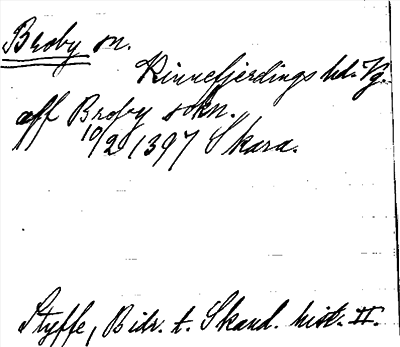 Broby sn.
Kinnefjerdings hd. Vg.
aff Broby sokn.
10/2 1397 Skara.
Styffe, Bidr. t. Skand. hist. II.